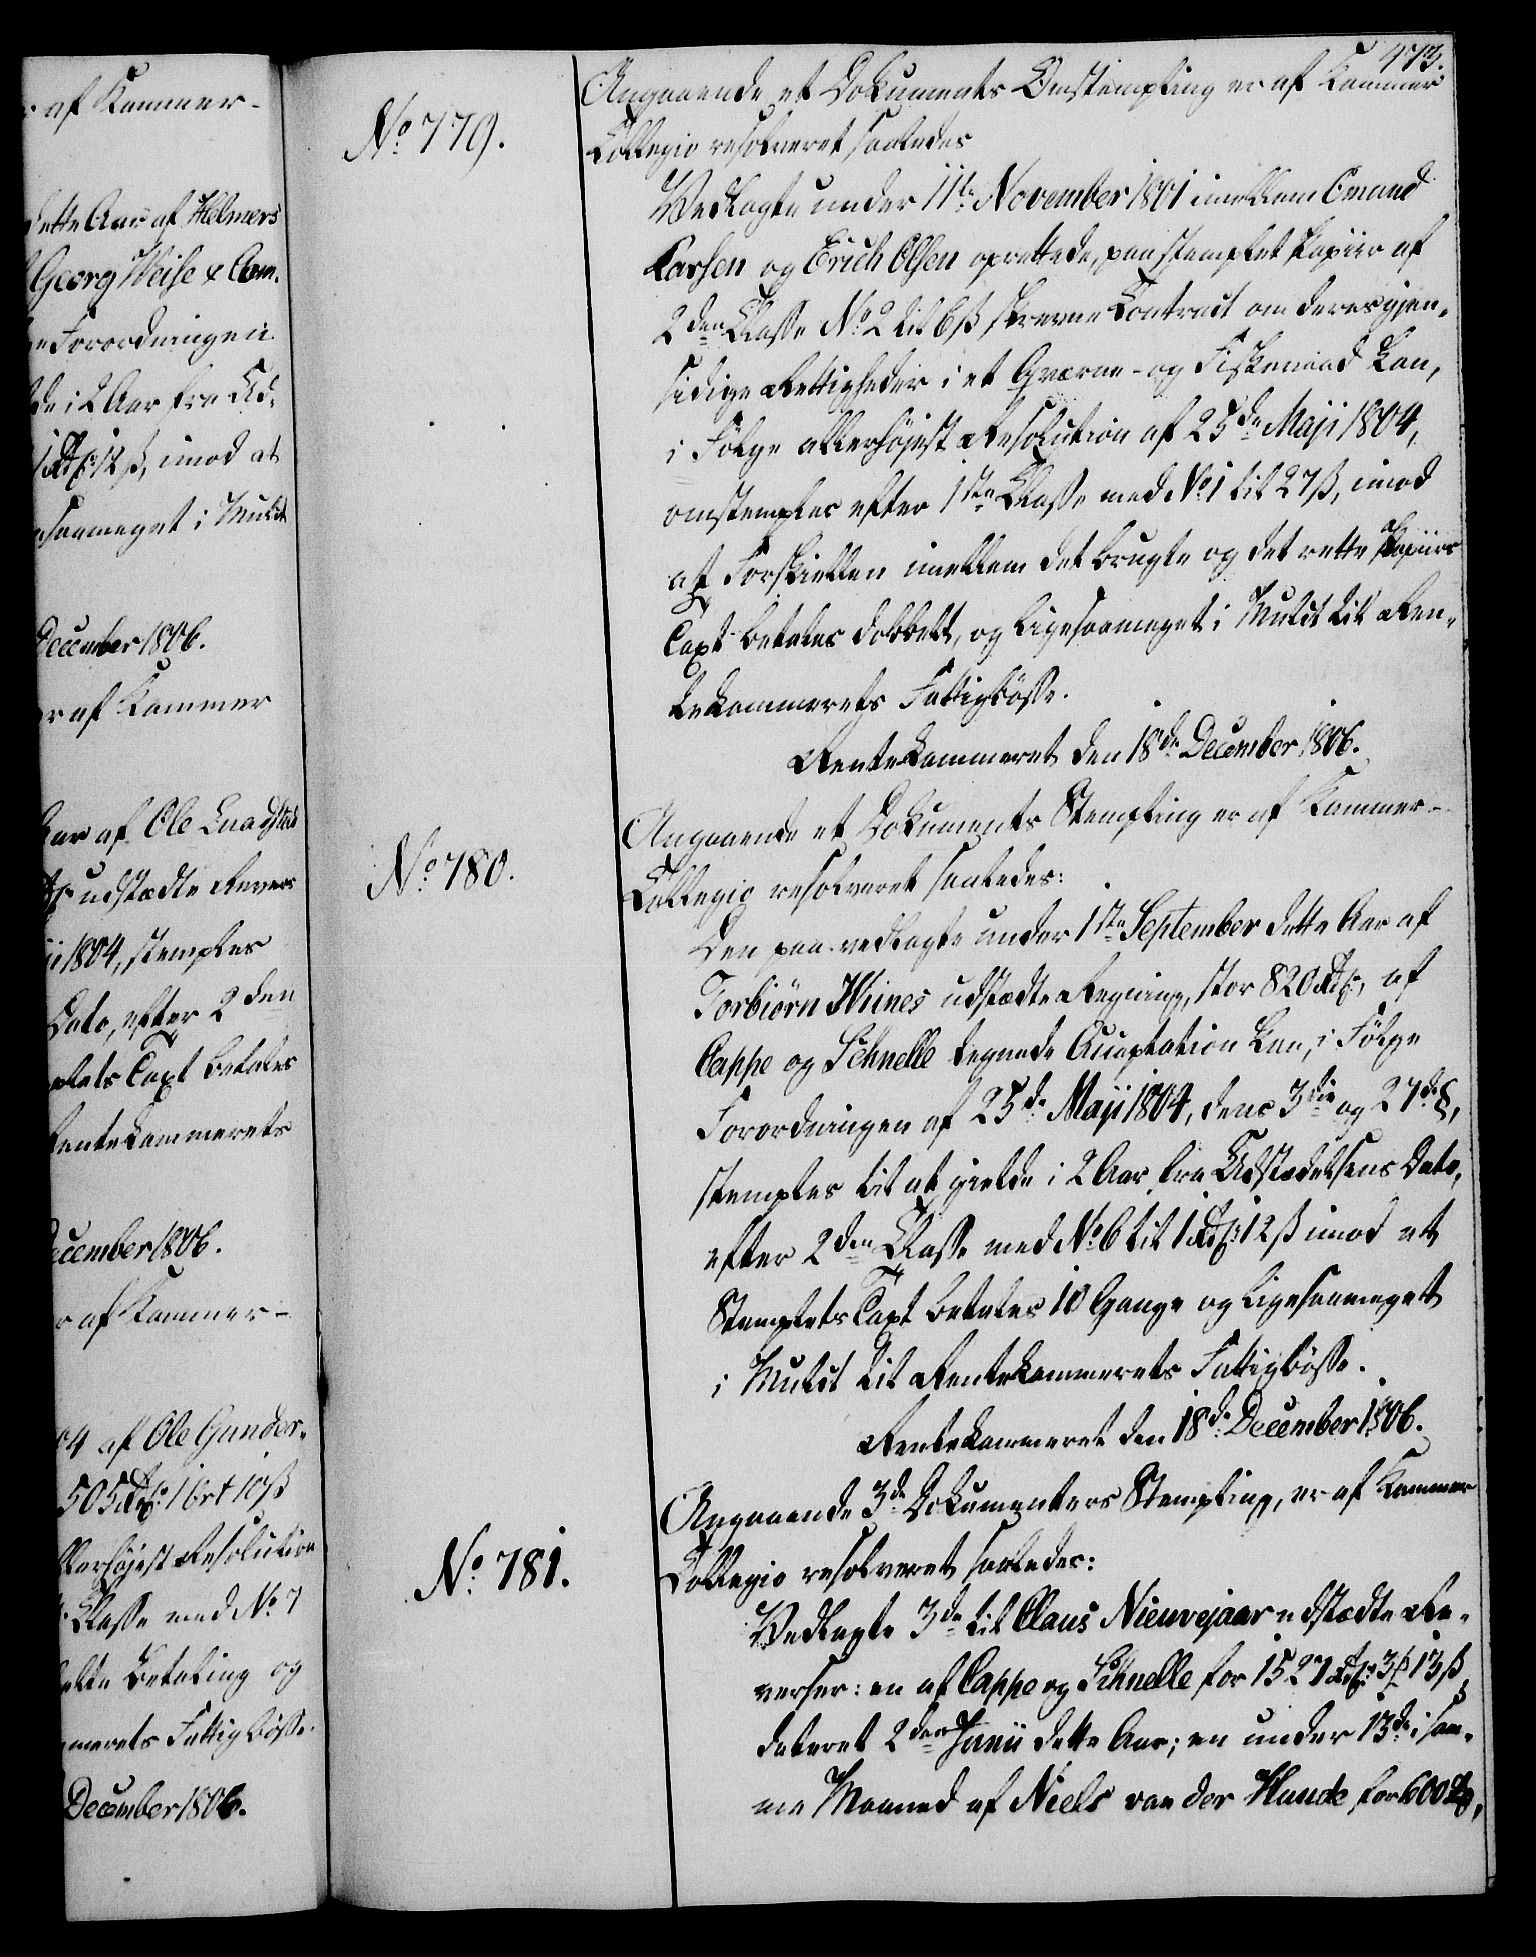 af Kammer-
dette Aar af Helmers
Georg Weise & Com.
Forordningen
de i 2 Aar fra Ud-
1 Rd 12 ß, imod at
saameget i Mulct
December 1806.
er af Kammer
Aar af Ole
udstædte Revers
ii 1804, stemples
Dato, efter 2den
plets Taxt betales
Rentekammerets
December 1806.
af Kammer-
04 af Ole Gunder-
505 Rd 1 Ort 10 ß
allerhøjest Resolution
Classe med No 7
Betaling og
merets Fattigbøsse.
December 1806.
473.
No 779.
Angaaende et Dokuments Omstempling er af Kammer
Collegio resolveret saaledes
Vedlagte under 11te November 1801 imellem Omund
Larsen og Erich Olsen oprettede, paa stemplet Papiir af
2den Classe No 2 til 6 ß skrevne Contract om deres gjen-
sidige Rettigheder i et Qværne- og Fiskevand kan,
i Følge allerhøjest Resolution af 25de Maji 1804,
omstemples efter 1ste Classe med No 1 til 27 ß, imod
at Forskiellen imellem det brugte og det rette Papiirs
Taxt betales dobbelt, og ligesaameget i Mulct til Ren-
tekammerets Fattigbøsse.
Rentekammeret den 18de December 1806.
No 780.
Angaaende et Dokuments Stempling er af Kammer-
Collegio resolveret saaledes:
Den paa vedlagte under 1ste September dette Aar af
Torbiörn Wiines udstædte Regning, stor 820 Rd, af
Cappe og Schnelle tegnede Acceptation kan, i Følge
Forordningen af 25de Maji 1804, dens 3die og 27de §,
stemples til at gielde i 2 Aar fra Udstædelsens Dato,
efter 2den Classe med No 6 til 1 Rd 12 ß imod at
Stemplets Taxt betales 10 Gange og ligesaameget
i Mulct til Rentekammerets Fattigbøsse.
Rentekammeret den 18de December 1806.
No 781.
Angaaende 3de Dokumenters Stempling, er af Kammer
Collegio resolveret saaledes:
Vedlagte 3de til Claus Nieuvejaar udstædte Re-
verser: en af Cappe og Schnelle for 1527 Rd 3 13 ß
dateret 2den Junii dette Aar; en under 13de i sam-
me Maaned af Niels van der Hude for 600 Rd,